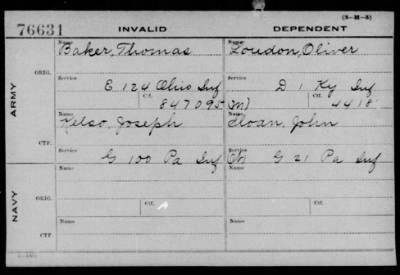 (3-M-3)
76631 INVALID DEPENDENT
Name Name
Baker, Thomas Loudon, Oliver
ARMY
ORIG.
Service Service
E 124 Ohio Inf D 1 Ky Inf
Ctf. 847095 (M) Ctf. 4418
Name Name
Kelso, Joseph Sloan, John
CTF.
Service Service
G 100 Pa Inf G 21 Pa Inf
NAVY
Name Name
ORIG.
Service Ctf. Service Ctf.
Name Name
CTF.
Service Service